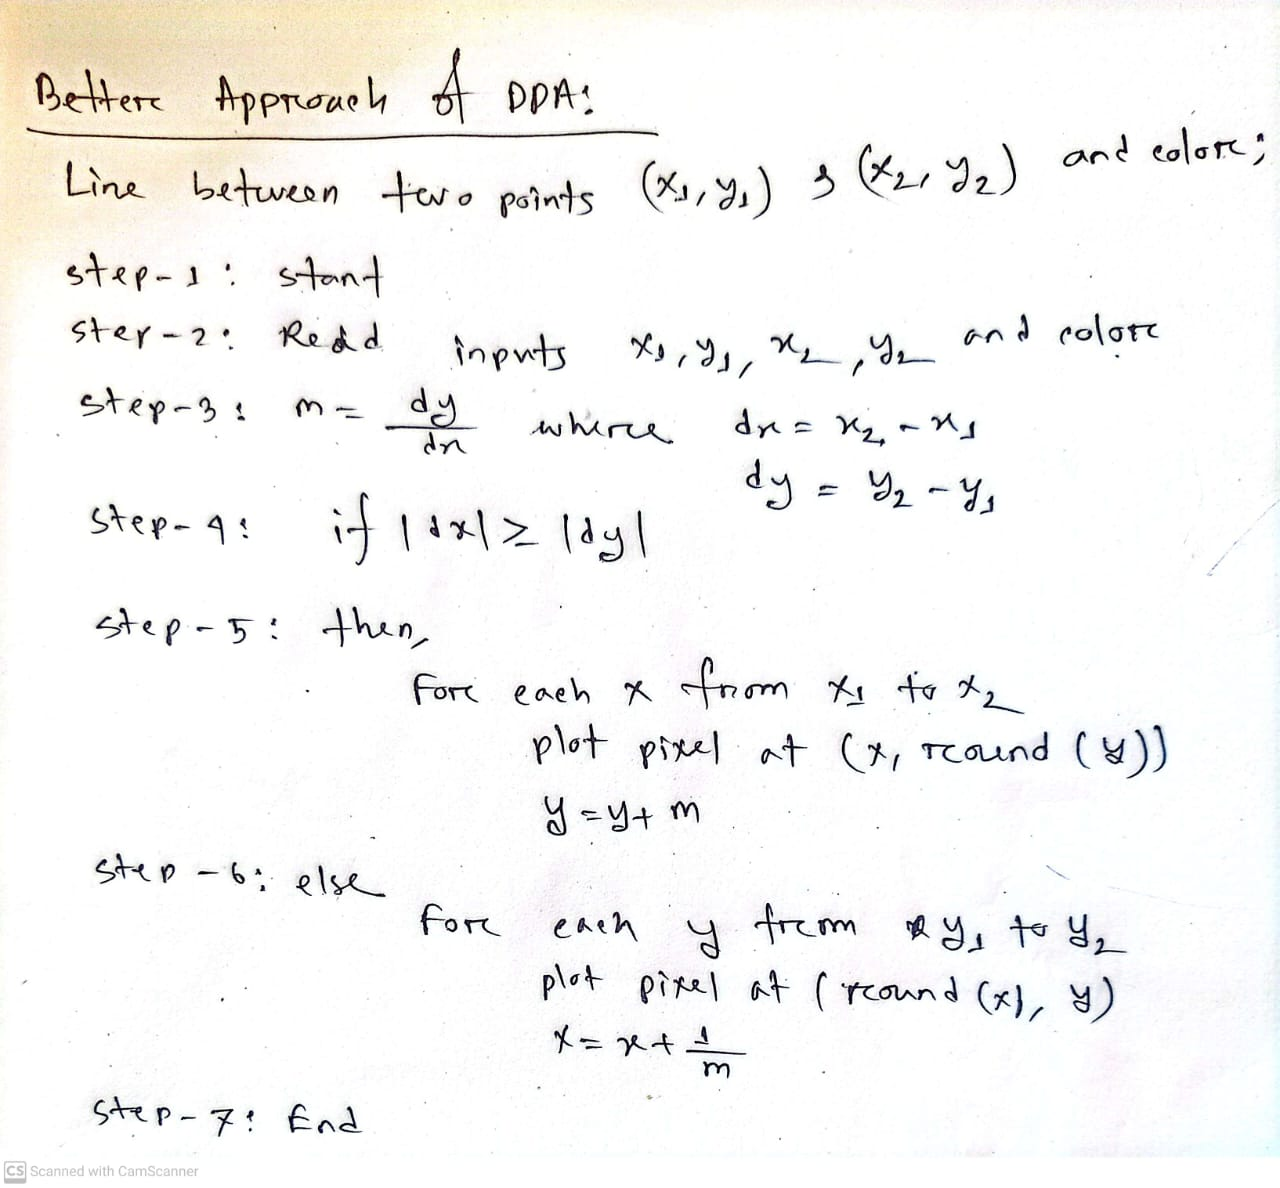 Better Approach of DDA:
Line between two points (x₁, y₁) & (x₂, y₂) and color;
step-1: start
step-2: Read inputs x₁, y₁, x₂, y₂ and color
step-3: m = dy/dx where dx = x₂ - x₁
dy = y₂ - y₁
step-4: if |dx| ≥ |dy|
step-5: then,
For each x from x₁ to x₂
plot pixel at (x, round (y))
y = y + m
step-6: else
For each y from y₁ to y₂
plot pixel at (round (x), y)
x = x + 1/m
step-7: End
CS Scanned with CamScanner